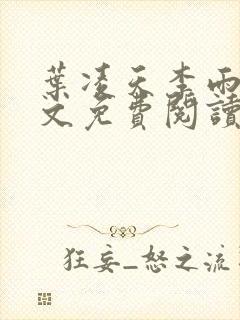 葉凌天李雨
文免費閱讀
狂妄_怒之流